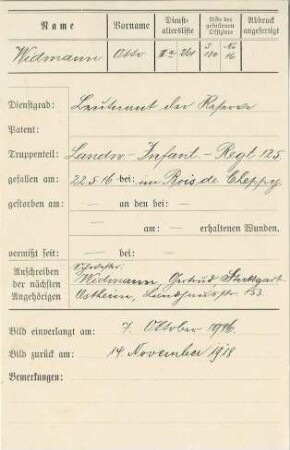 Name Vorname Dienst-altersliste Liste der gefallenen Offiziere Abdruck angefertigt
Widmann Otto
Dienstgrad: Leutnant der Reserve
Patent:
Truppenteil: Landw.-Infant.-Regt 125
gefallen am: 22.5.16 bei: im Bois de Cheppy
gestorben am: — an den bei: —
— am: — erhaltenen Wunden.
vermißt seit: — bei: —
Anschreiben der nächsten Angehörigen
Widmann, Gertrud Stuttgart
Ostheim, Landhausstr. 153
Bild einverlangt am: 7. Oktober 1916
Bild zurück am: 14. November 1918
Bemerkungen: